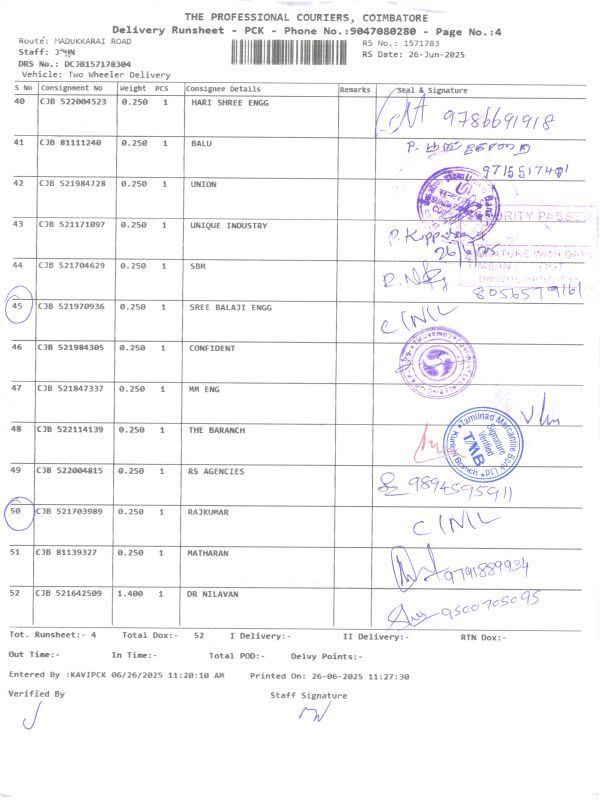 THE PROFESSIONAL COURIERS, COIMBATORE
Delivery Runsheet - PCK - Phone No.:9047080280 - Page No.:4
Route: MADUKKARAI ROAD
RS No.: 1571783
Staff: JOHN
RS Date: 26-Jun-2025
DRS No.: DCJB157178304
Vehicle: Two Wheeler Delivery
S No Consignment No Weight PCS Consignee Details Remarks Seal & Signature
40 CJB 522004523 0.250 1 HARI SHREE ENGG 9786691918
41 CJB 81111240 0.250 1 BALU
42 CJB 521984728 0.250 1 UNION
43 CJB 521171097 0.250 1 UNIQUE INDUSTRY
26/6/25
44 CJB 521704629 0.250 1 SBM 8056579161
45 CJB 521970936 0.250 1 SREE BALAJI ENGG C I NIL
46 CJB 521984305 0.250 1 CONFIDENT
47 CJB 521847337 0.250 1 MM ENG
48 CJB 522114139 0.250 1 THE BARANCH
Tamilnad Mercantile Bank Ltd
Signature Verified
TMB
49 CJB 522004815 0.250 1 RS AGENCIES 9894595911
50 CJB 521703989 0.250 1 RAJKUMAR C I NIL
51 CJB 81139327 0.250 1 MATHARAN 9791889934
52 CJB 521642509 1.400 1 DR NILAVAN 9500705095
Tot. Runsheet:- 4 Total Dox:- 52 I Delivery:- II Delivery:- RTN Dox:-
Out Time:- In Time:- Total POD:- Delvy Points:-
Entered By :KAVIPCK 06/26/2025 11:20:10 AM Printed On: 26-06-2025 11:27:30
Verified By Staff Signature